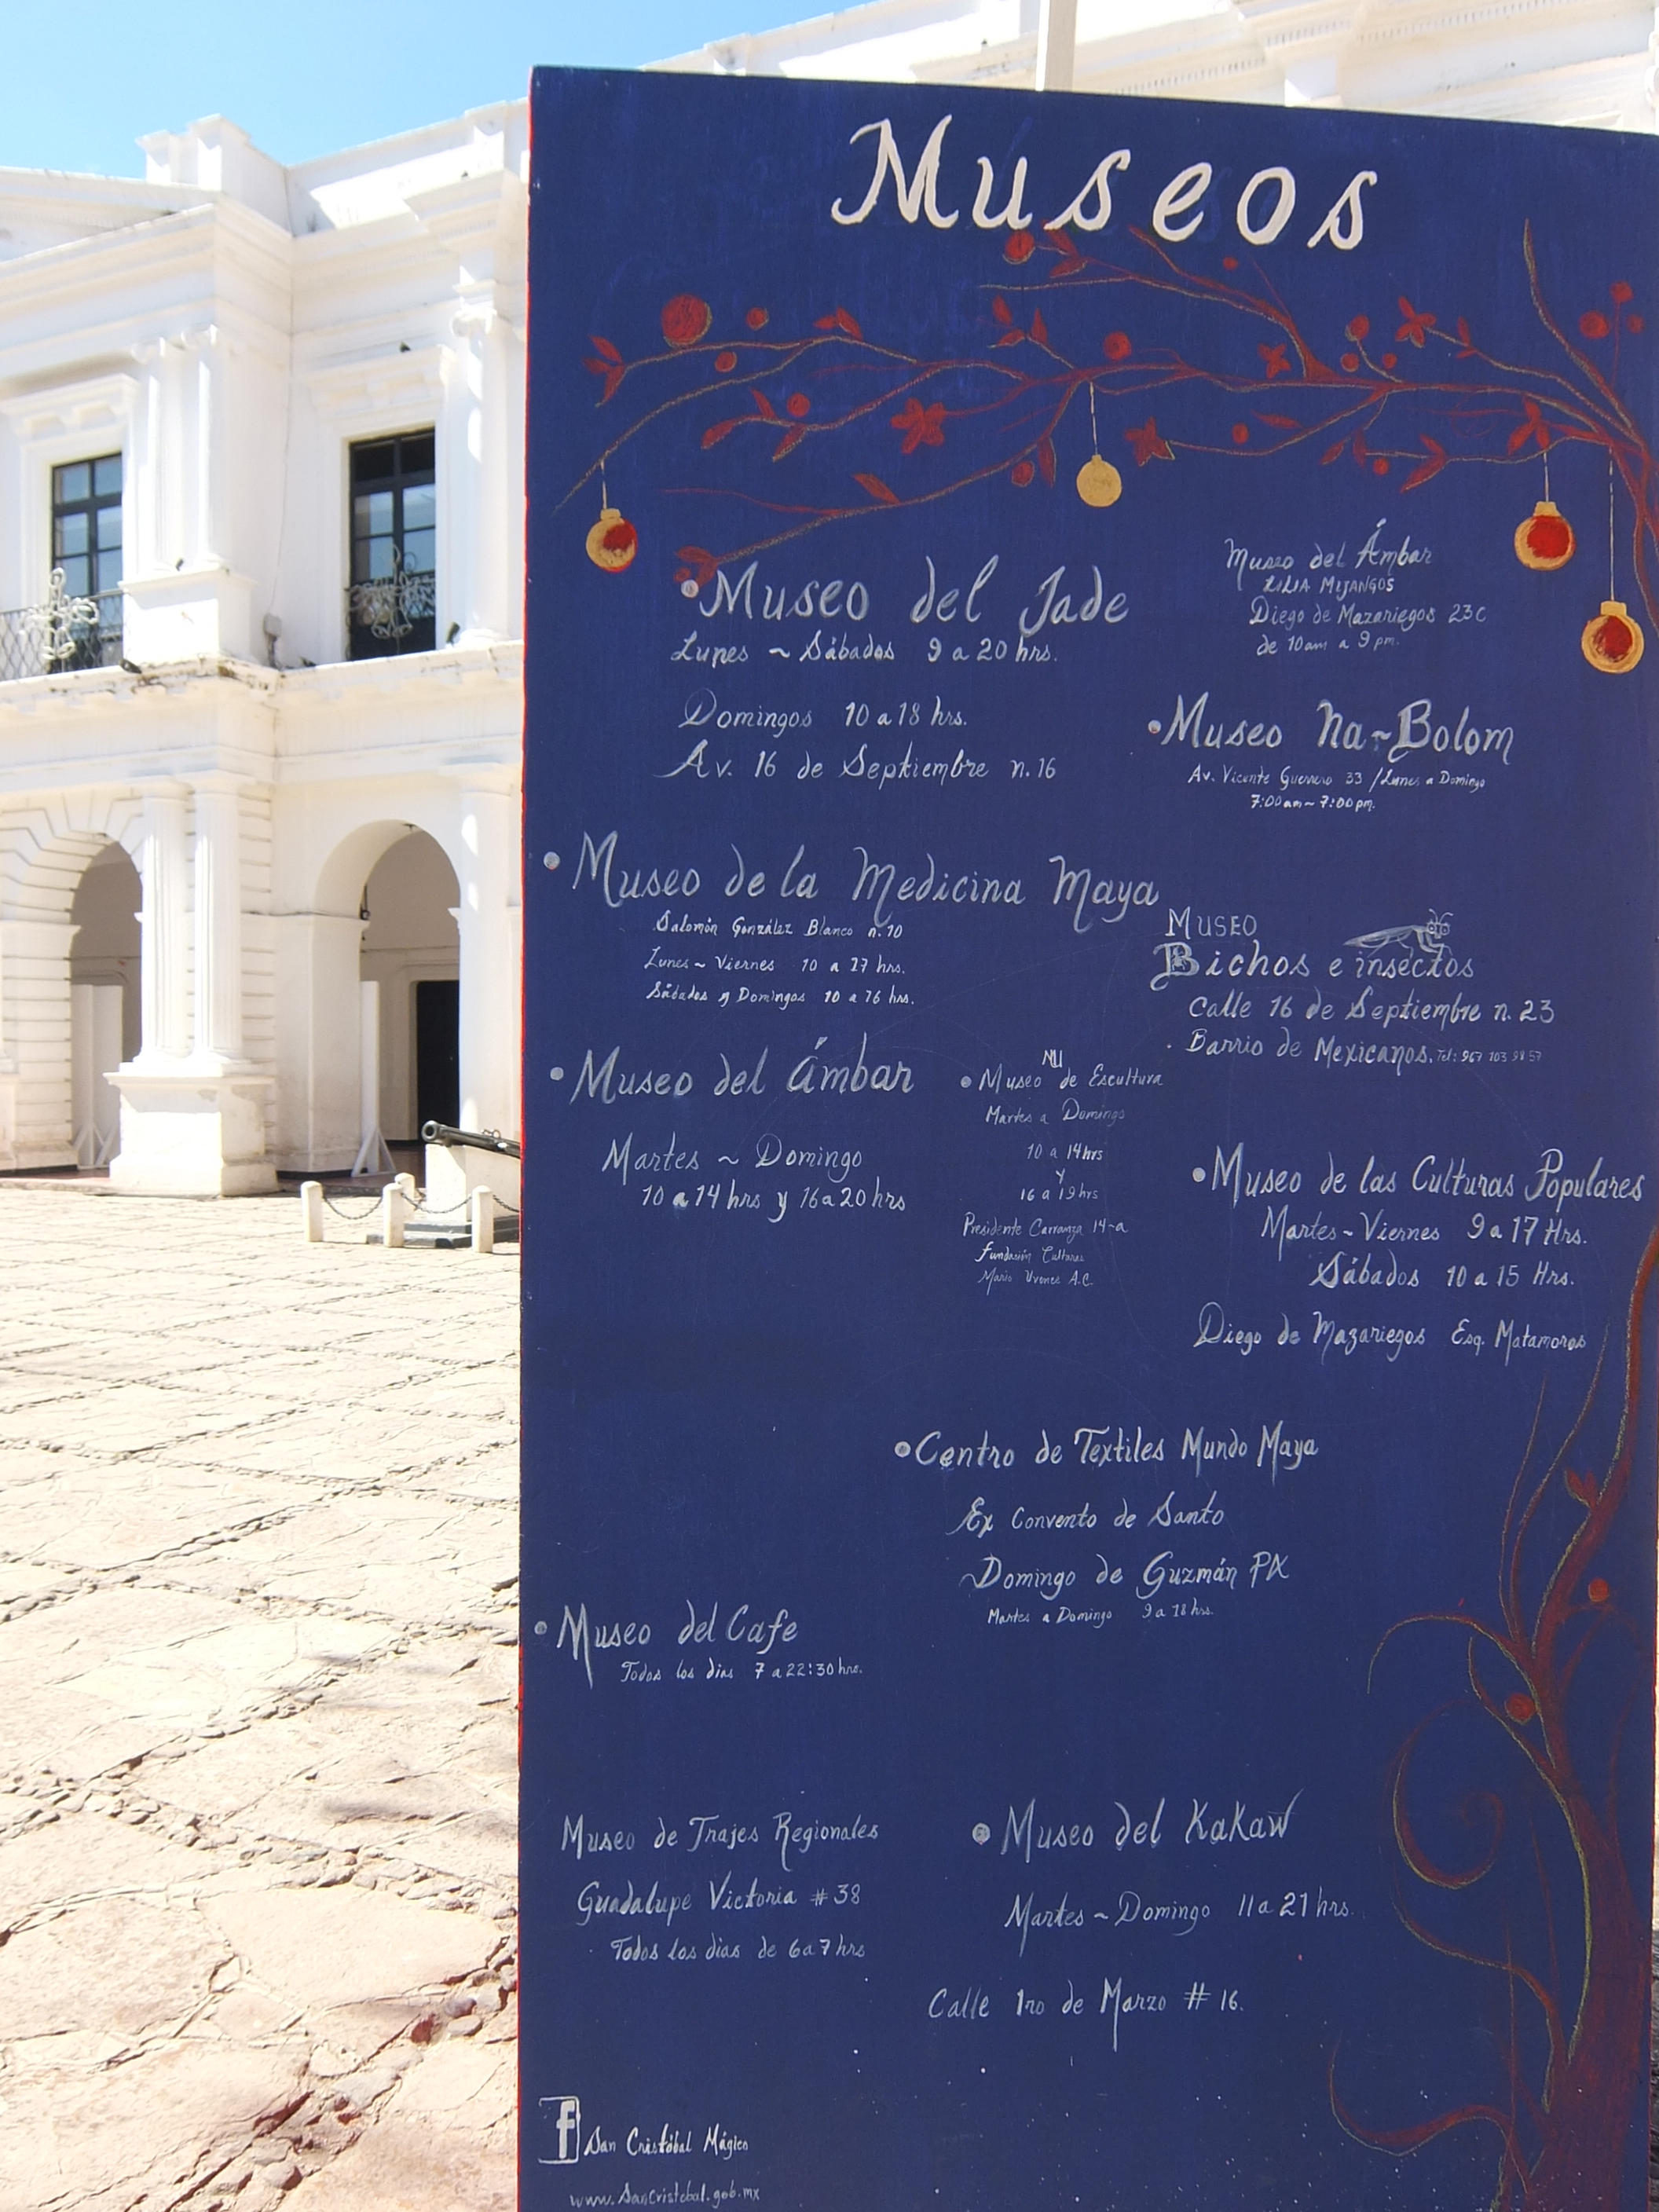 Museos
Museo del Jade
Lunes ~ Sábados 9 a 20 hrs.
Domingos 10 a 18 hrs.
Av. 16 de Septiembre n. 16
Museo del Ámbar
LILIA MIJANGOS
Diego de Mazariegos 23 C
de 10am a 9 pm.
Museo Na~Bolom
Av. Vicente Guerrero 33 / Lunes a Domingo
7:00am ~ 7:00pm.
Museo de la Medicina Maya
Salomón González Blanco n. 10
Lunes ~ Viernes 10 a 17 hrs.
Sábados y Domingos 10 a 16 hrs.
MUSEO
Bichos e insectos
Calle 16 de Septiembre n. 23
Barrio de Mexicanos. Tel: 967 103 98 57
Museo del Ámbar
Martes ~ Domingo
10 a 14 hrs y 16 a 20 hrs
MU
Museo de Escultura
Martes a Domingo
10 a 14 hrs
y
16 a 19 hrs
Presidente Carranza 14-a
Fundación Cultural
Mario Uvence A.C.
Museo de las Culturas Populares
Martes ~ Viernes 9 a 17 Hrs.
Sábados 10 a 15 Hrs.
Diego de Mazariegos Esq. Matamoros
Centro de Textiles Mundo Maya
Ex Convento de Santo
Domingo de Guzmán
Martes a Domingo 9 a 18 hrs.
Museo del Cafe
Todos los dias 7 a 22:30 hrs.
Museo de Trajes Regionales
Guadalupe Victoria # 38
Todos los dias de 6 a 7 hrs
Museo del KaKaw
Martes ~ Domingo 11 a 21 hrs.
Calle 1ro de Marzo # 16.
f San Cristóbal Mágico
www.SanCristobal.gob.mx